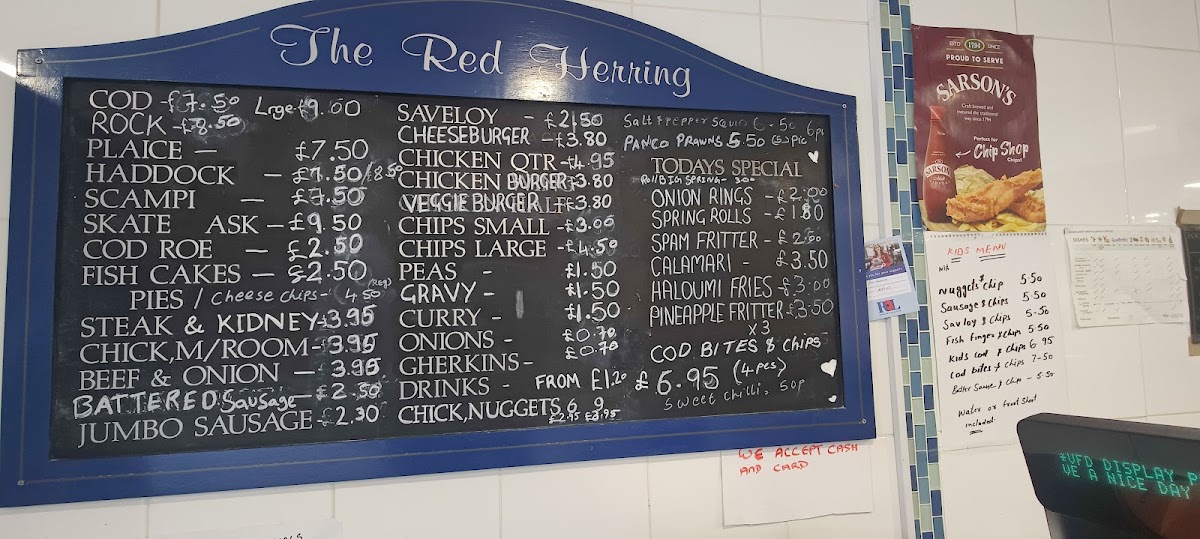 The Red Herring
COD - £7.50 Lrge £9.00
ROCK - £8.50
PLAICE - £7.50
HADDOCK - £7.50/8.50
SCAMPI - £7.50
SKATE ASK - £9.50
COD ROE - £2.50
FISH CAKES - £2.50
PIES / cheese chips - 4.50
STEAK & KIDNEY - £3.95
CHICK,M/ROOM - £3.95
BEEF & ONION - £3.95
BATTERED Sausage - £2.50
JUMBO SAUSAGE - £2.30
SAVELOY - £2.50
CHEESEBURGER - £3.80
CHICKEN QTR - £4.95
CHICKEN BURGER - £3.80
VEGGIE BURGER £3.80
CHIPS SMALL - £3.00
CHIPS LARGE - £4.50
PEAS - £1.50
GRAVY - £1.50
CURRY - £1.50
ONIONS - £0.70
GHERKINS - £0.70
DRINKS - FROM £1.20
CHICK,NUGGETS 6 9
£2.95 £3.95
Salt & Pepper Squid 6.50
PANKO PRAWNS 5.50 6pc
TODAYS SPECIAL
Roll BIG SPRING - 3.00
ONION RINGS - £2.00
SPRING ROLLS - £1.80
SPAM FRITTER - £2.00
CALAMARI - £3.50
HALOUMI FRIES - £3.00
PINEAPPLE FRITTER £3.50
x3
COD BITES & CHIPS
£6.95 (4pcs)
Sweet chilli, 50p
WE ACCEPT CASH
AND CARD
ESTD 1794 SINCE
PROUD TO SERVE
SARSON'S
Craft brewed and
matured the traditional
way since 1794
Perfect for
Chip Shop
Chips!
SARSON'S
KIDS MENU
Nuggets & Chip 5.50
Sausage & Chips 5.50
Savloy & Chips 5.50
Fish finger & Chips 5.50
Kids Cod & Chips 6.95
Cod bites & Chips 7.50
Batter Sausage & Chip - 5.50
Water or Fruit Shoot
included
*VFD DISPLAY P
VE A NICE DAY